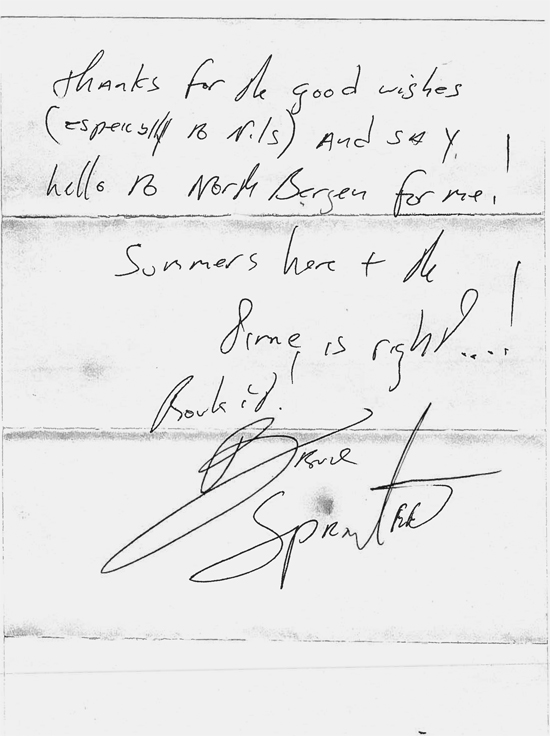 thanks for the good wishes
(especially to Nils) and say
hello to North Bergen for me!
Summers here + the
time is right....!
Bruce